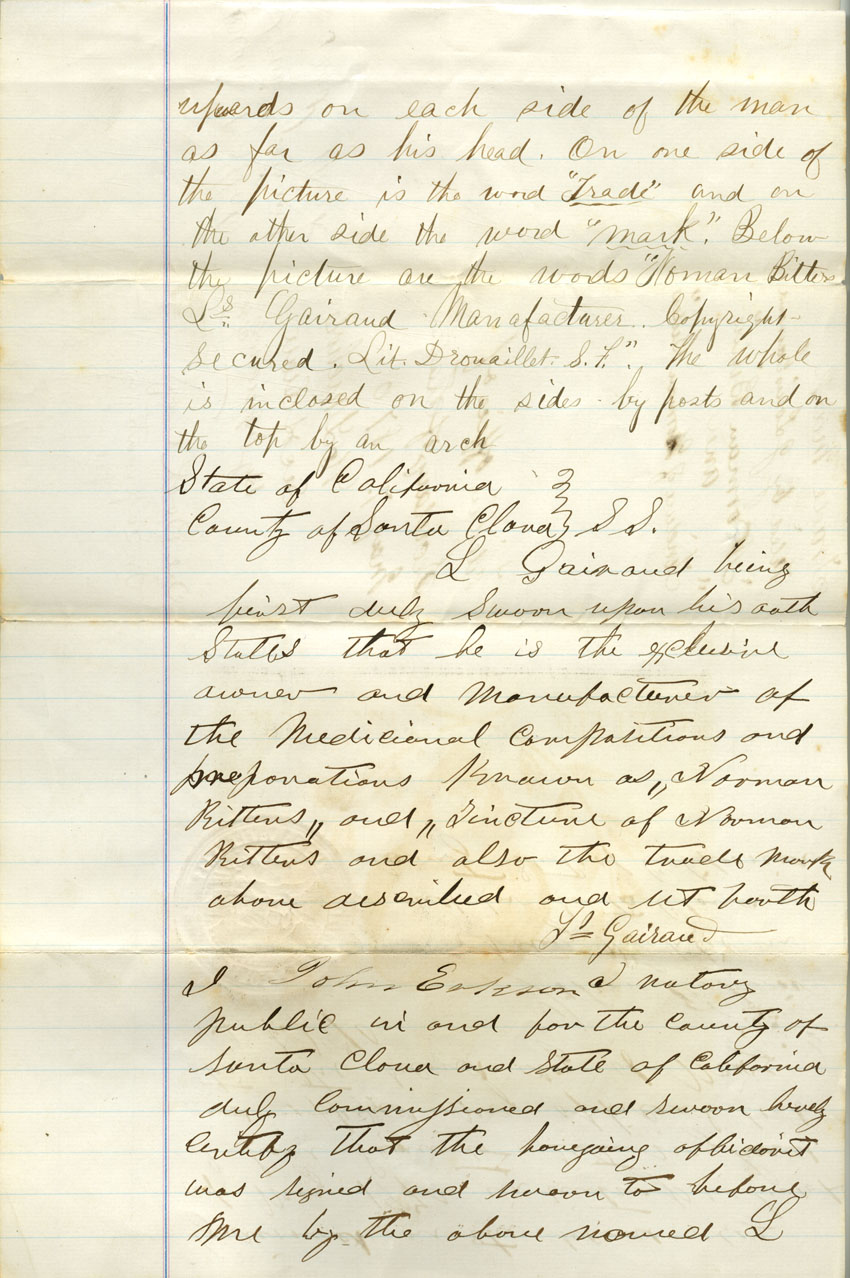 upwards on each side of the man
as far as his head. On one side of
the picture is the word "Trade" and on
the other side the word "mark". Below
the picture are the words "Norman Bitters
Ls. Gairaud Manafacturer. Copyright
secured. Lit. Drouaillet. S. F.". The whole
is inclosed on the sides by posts and on
the top by an arch
State of California }
County of Santa Clara } S S.
L Gairaud being
first duly sworn upon his oath
States that he is the exclusive
owner and manufacturer of
the Medicional Compositions and
preparations Known as „Norman
Bitters„ and „Tincture of Norman
Bittens and also the trade mark
above described and set forth
Ls Gairaud
I John a notary
public in and for the County of
Santa Clara and State of California
duly Commissioned and sworn hereby
Certify that the foregoing affidavit
was signed and sworn to before
me by the above named L